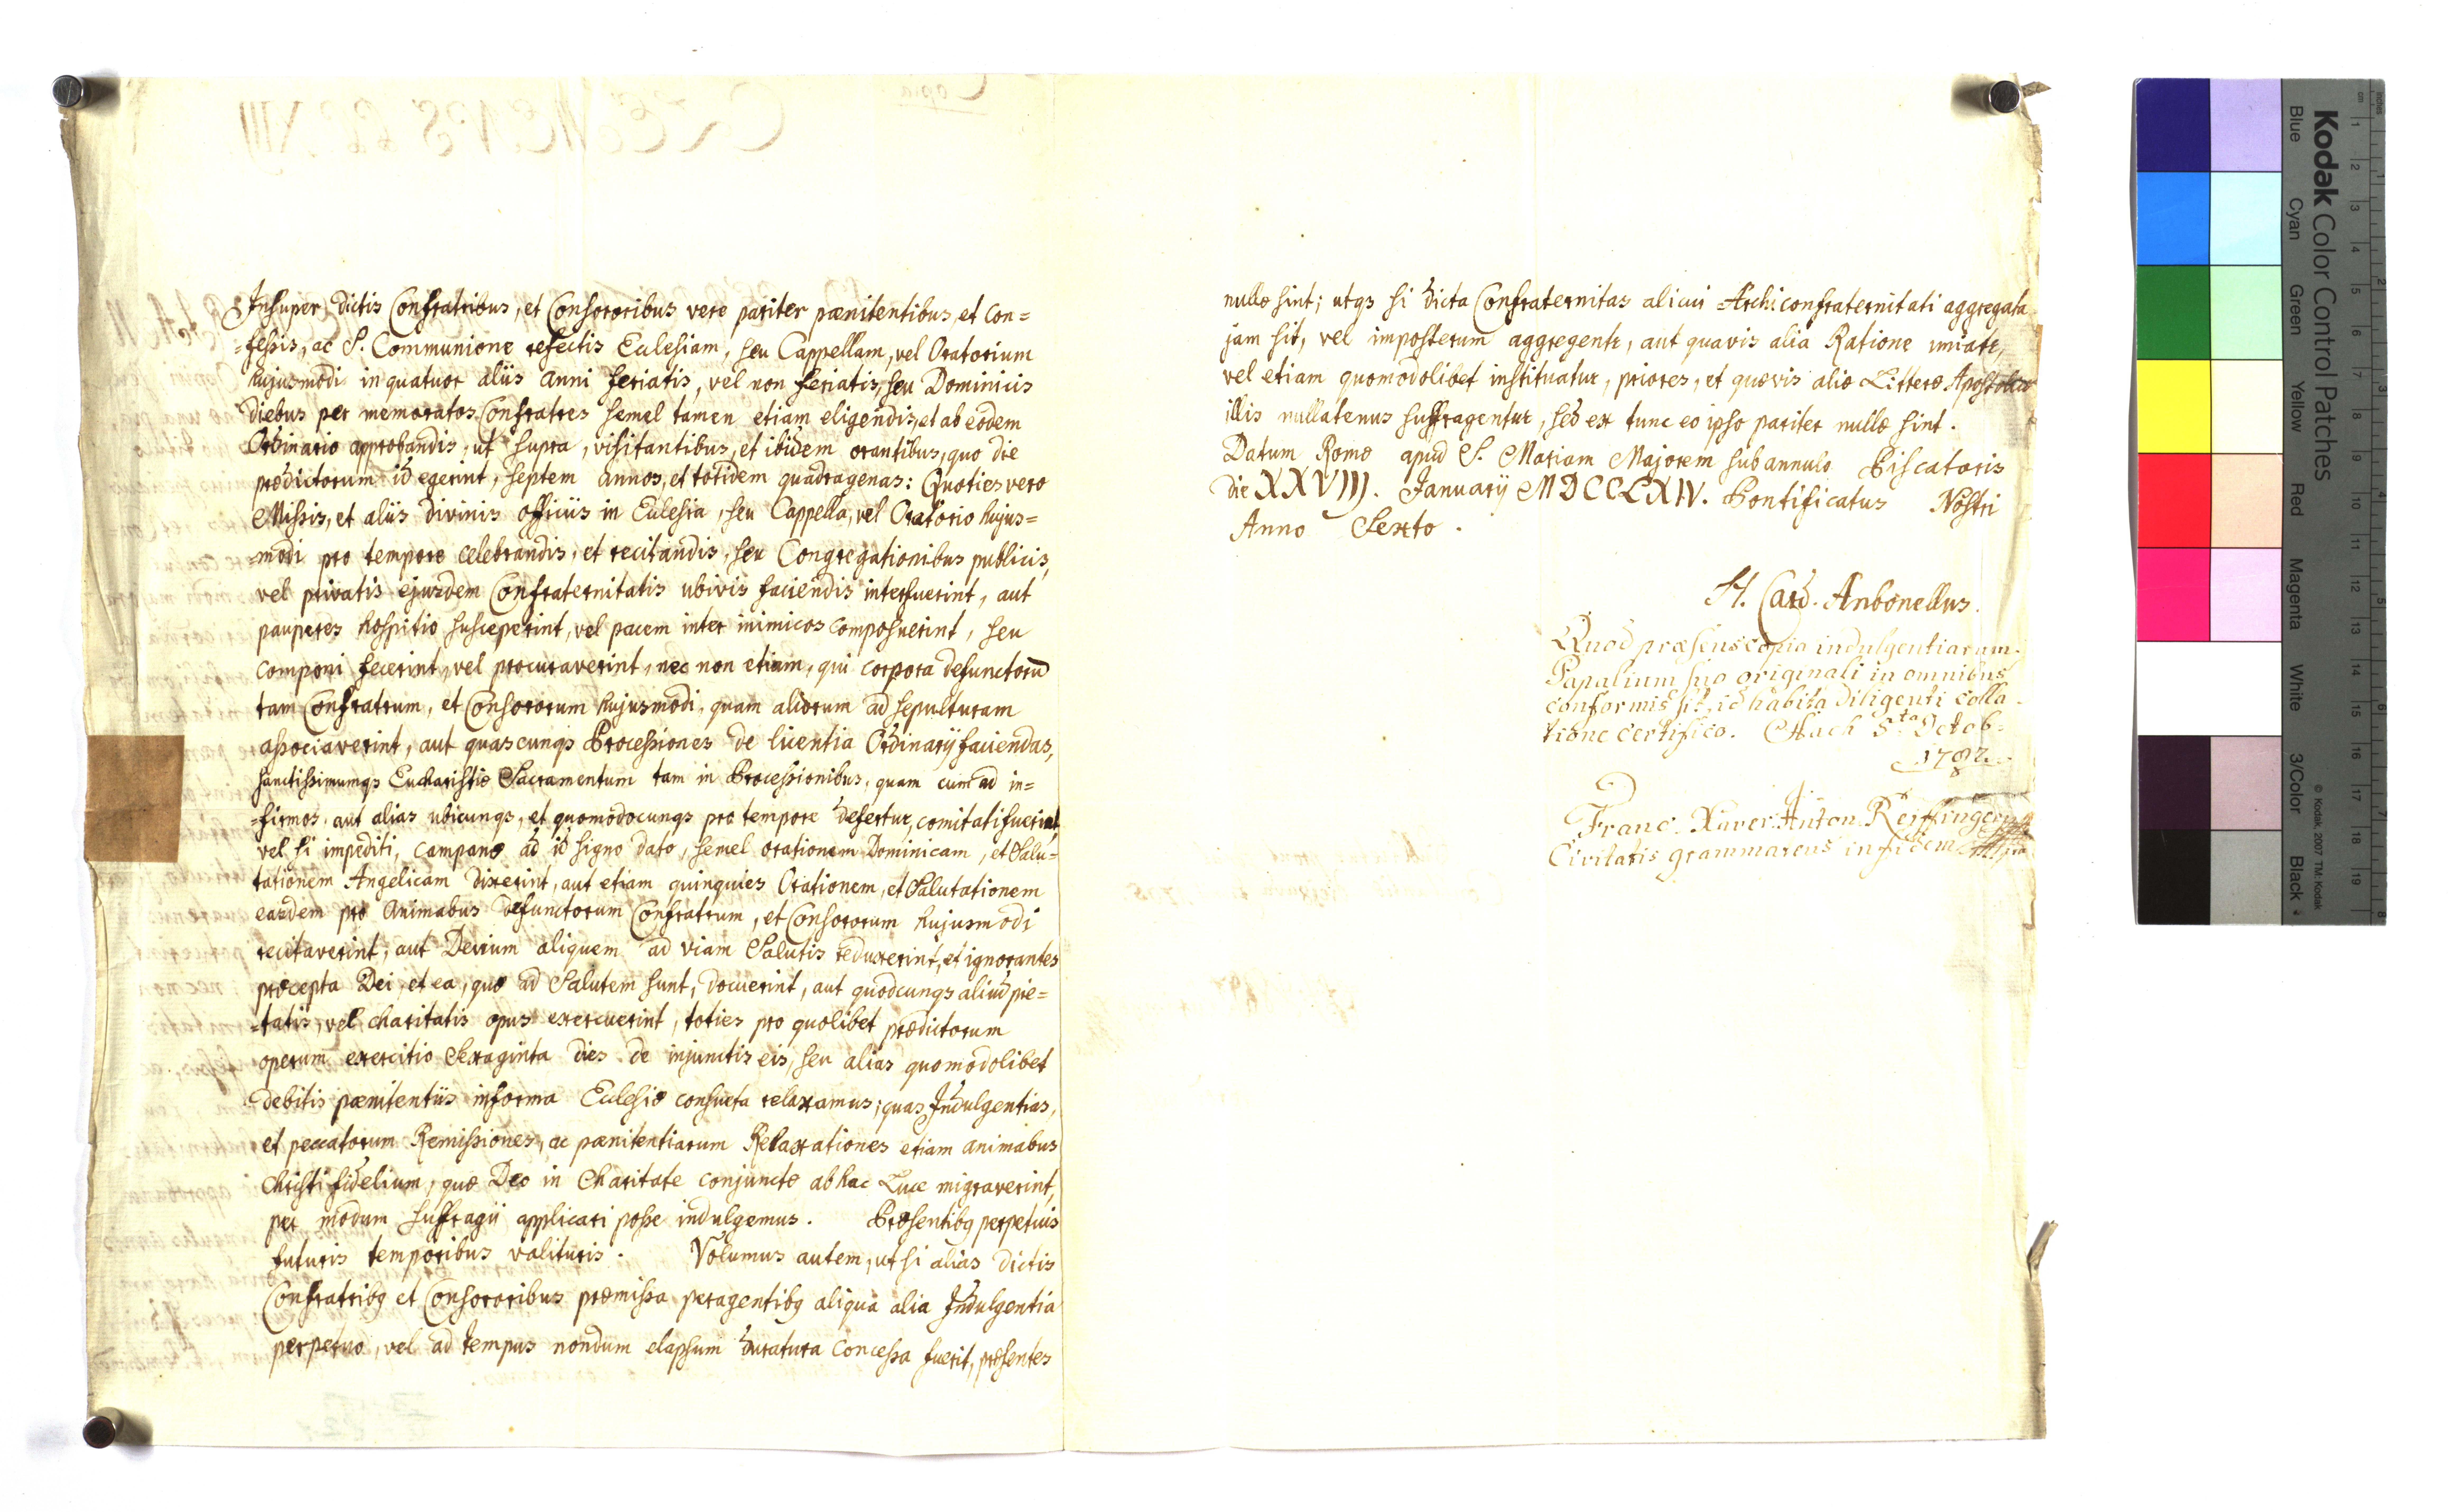 Insuper dictis Confratribus, et Consororibus vere pariter pænitentibus, et con=
=fessis, ac S. Communione refectis Eclesiam, seu Cappellam, vel Oratorium
hujusmodi in quatuor aliis anni feriatis, vel non feriatis, seu Dominicis
diebus per memoratos Confratres semel tamen etiam eligendis, et ab eodem
Ordinario approbandis, ut supra, visitantibus, et ibidem orantibus, quo die
prædictorum id egerint, septem annos, et totidem quadragenas: Quoties vero
Missis, et aliis divinis officiis in Eclesia, seu Cappella, vel Oratorio hujus=
=modi pro tempore celebrandis, et recitandis, seu Congregationibus publicis,
vel privatis ejusdem Confraternitatis ubivis faciendis interfuerint, aut
pauperes hospitio susceperint, vel pacem inter inimicos composuerint, seu
componi fecerint, vel procuraverint, nec non etiam, qui corpora defunctorū
tam Confratrum, et Consororum hujusmodi, quam aliorum ad sepulturam
associaverint, aut quascunqs Processiones de licentia Ordinarij faciendas,
sanctissimumqs Eucharistiæ Sacramentum tam in Processionibus, quam cum ad in=
=firmos, aut alias ubicunqs, et quomodocunqs pro tempore defertur, comitati fuerint,
vel si impediti, campanæ ad id signo dato, semel orationem Dominicam, et Salu=
tationem Angelicam dixerint, aut etiam quinquies Orationem, et Salutationem
easdem pro animabus defunctorum Confratrum, et Consororum hujusmodi
recitaverint, aut Devium aliquem ad viam Salutis reduxerint, et ignorantes
præcepta Dei, et ea, quæ ad Salutem sunt, docuerint, aut quodcunqs aliud pie=
=tatis, vel charitatis opus exercuerint, toties pro quolibet prædictorum
operum exercitio Sexaginta dies de injunctis eis, seu alias quomodolibet
debitis pænitentiis in forma Eclesiæ consueta relaxamus; quas Indulgentias,
et peccatorum Remissiones, ac pænitentiarum Relaxationes etiam animabus
Christi fidelium, quæ Deo in Charitate conjunctæ ab hac Luce migraverint,
per modum suffragii applicari posse indulgemus. Præsentibq perpetuis
futuris temporibus valituris. Volumus autem, ut si alias dictis
Confratribq et Consororibus præmissa peragentibq aliqua alia Indulgentia
perpetuo, vel ad tempus nondum elapsum duratura concessa fuerit, præsentes
nullæ sint; utqs si dicta Confraternitas alicui Archiconfraternitati aggregata
jam sit, vel imposterum aggregentr, aut quavis alia Ratione uniatr,
vel etiam quomodolibet instituatur, priores, et quævis aliæ Litteræ Apostolicæ
illis nullatenus suffragentur, sed ex tunc eo ipso pariter nullæ sint.
Datum Romæ apud S. Mariam Majorem sub annulo Piscatoris
die XXVIII. Januarij MDCCLXIV. Pontificatus Nostri
Anno Sexto.
Card. Antonellus.
Quod præsens copia indulgentiarum
Papalium suo originali in omnibus
conformis sit, id habita diligenti colla
tione certifico. 5ta Octob:
1782.
Franc. Xaver. Anton.
Civitatis grammateus in fidem
Kodak Color Control Patches
Blue Cyan Green Yellow Red Magenta White 3/Color Black
© Kodak, 2007 TM: Kodak
inches 1 2 3 4 5 6 7 8
cm 1 2 3 4 5 6 7 8 9 10 11 12 13 14 15 16 17 18 19